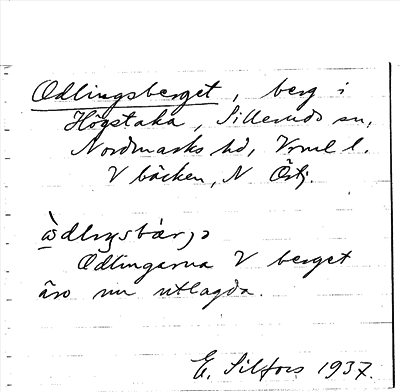 Odlingsberget, berg i
Högstaka, Sillerud sn,
Nordmarks hd, Vrml l.
V bäcken, N Östj.
Odlingarna V berget
äro nu utlagda.
E. Silfors 1937.